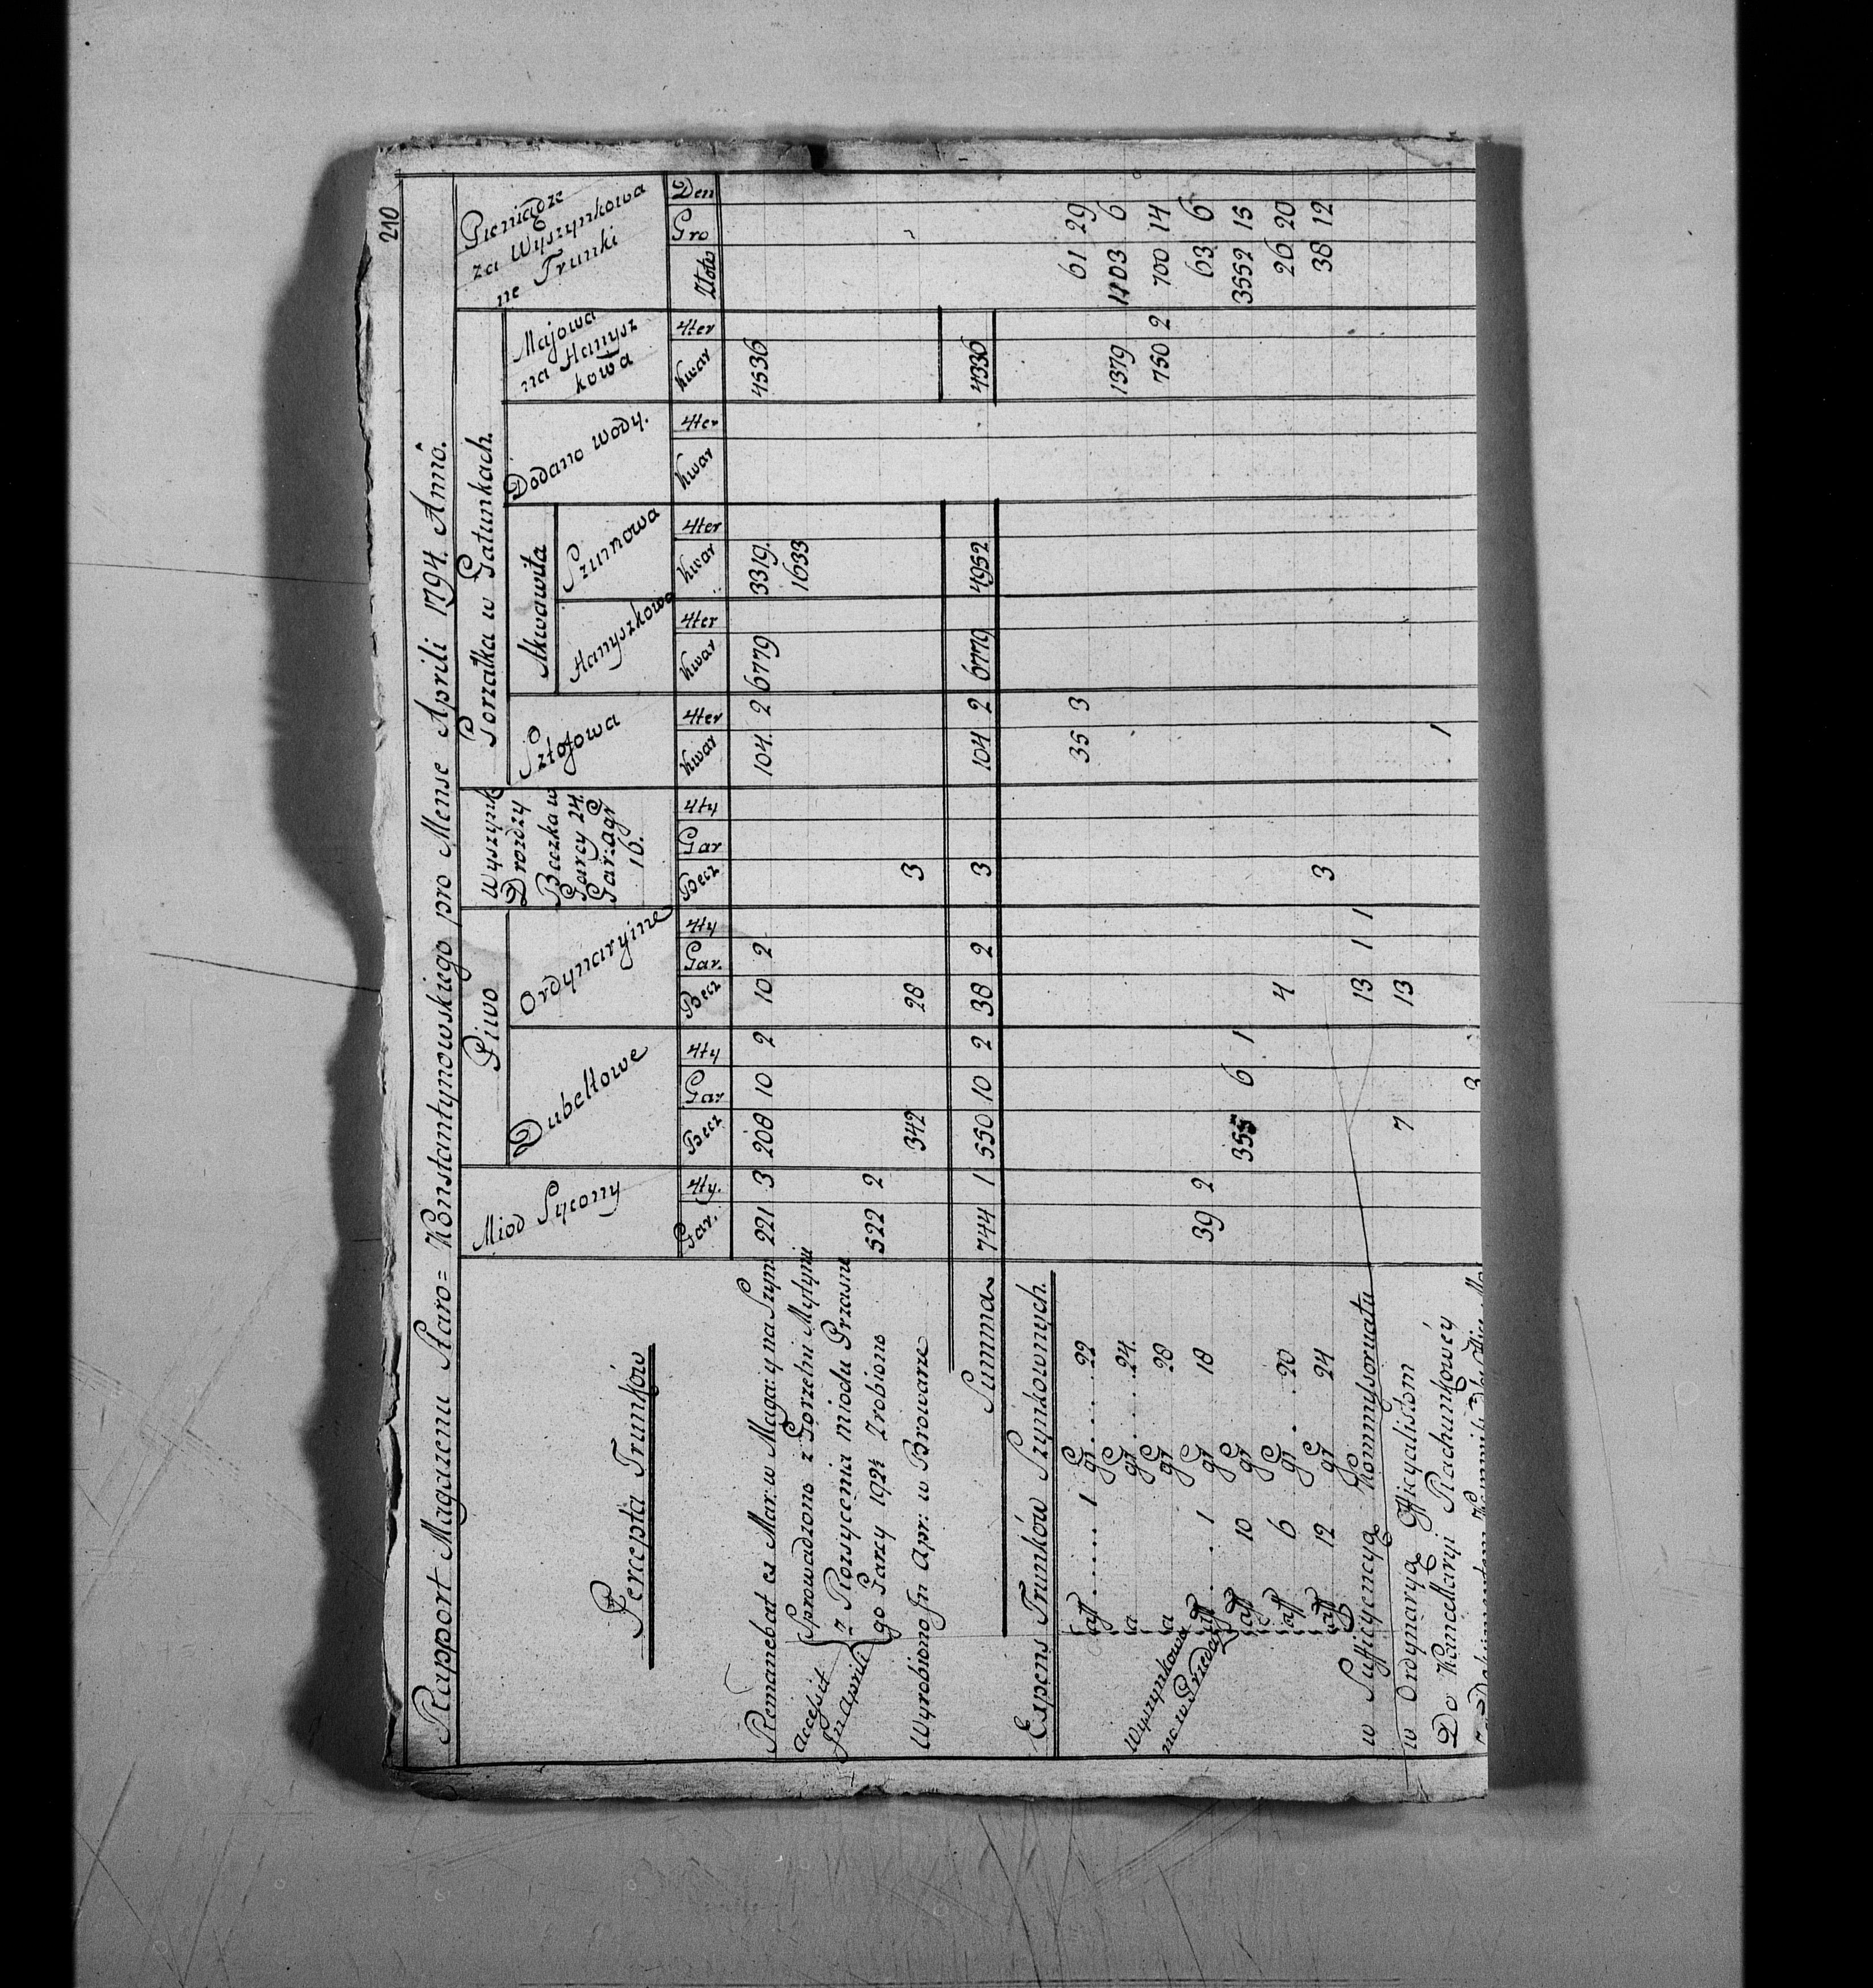 210
Rapport Magazenu Staro= Konstantynowskiego pro Mense Aprili 1794. Anno.
Percepta Trunków | Miod Sycony | Piwo | Wyszynk Drozdzy Beczka w Garcy 24. Gar: a gr 16. | Gorzałka w Gatunkach. | Pieniądze za Wyszynkowane Trunki
Dubeltowe | Ordynaryine | Sztofowa | Akwawita | Dodano wody. | Majowa na Hanyszkowa
Hanyszkowa | Szumowa
Gar. 4ty. | Becz Gar 4ty | Becz Gar. 4ty | Becz Gar 4ty | Kwar 4ter | Kwar 4ter | Kwar 4ter | Kwar 4ter | Kwar 4ter | Złote Gro Den
Remanebat ex Mar: w Maga: y na Szyn 221 3 208 10 2 10 2 104. 2 6779 3319. 4536
Accessit In Aprili
Sprowadzono z Gorzelni Mytyni 1633
z Rozsycenia Miodu Przasne
go Garcy 192½ Zrobiono 522 2
Wyrobiono In Apr: w Browarze 342 28 3
Summa 744 1 550 10 2 38 2 3 104 2 6779 4952 4336
Expens Trunków Szynkownych.
Wyszynkowane w Przedaży
aff 1 gr 22 35 3 61 29
a gr 24. 1379 1103 6
a gr 28 750 2 700 14
aff 1 gr 18 39 2 63 6
aff 10 gr 355 6 1 3552 15
aff 6 gr 20 4 26 20
aff 12 gr 24 3 38 12
w Sufficyencyą Kommyssoryatu 13 1 1
w Ordynaryą Officyalistom 7 13
Do Kancellaryi Rachunkowéy 1
3